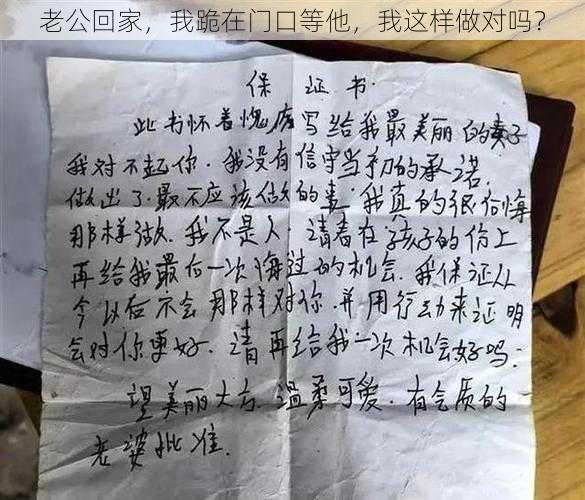 老公回家，我跪在门口等他，我这样做对吗？
保 证 书
此书怀着愧疚写给我最美丽的妻子
我对不起你．我没有信守当初的承诺．
做出了最不应该做的事．我真的很后悔
那样做．我不是人．请看在孩子的份上
再给我最后一次悔过的机会．我保证从
今以后不会那样对你．并用行动来证明
会对你更好．请再给我一次机会好吗：
望美丽大方．温柔可爱．有气质的
老婆批准．